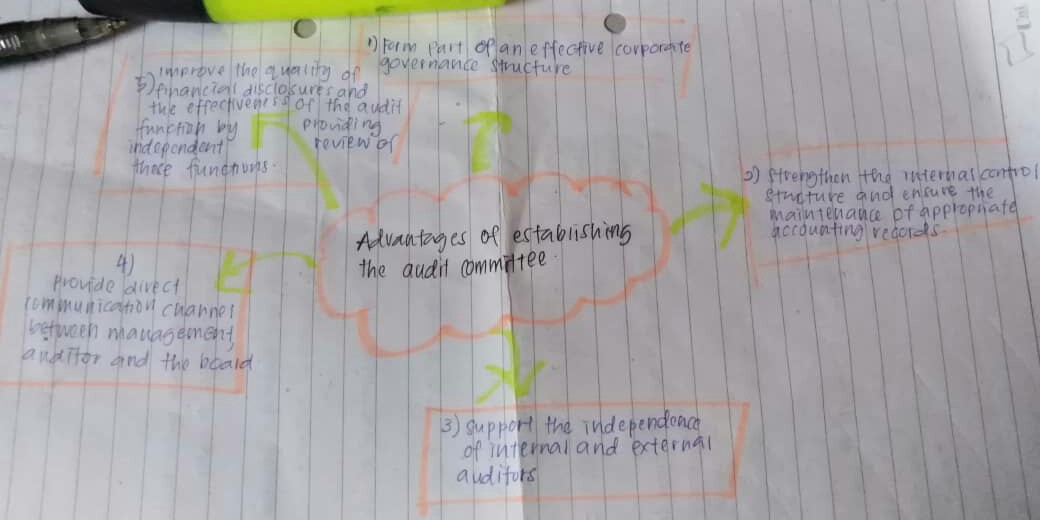 Advantages of establishing
the audit committee.
1) Form part of an effective corporate
governance structure
2) Strengthen the internal control
structure and ensure the
maintenance of appropriate
accounting records.
3) support the independence
of internal and external
auditors
4)
Provide direct
communication channel
between management,
auditor and the board
5) improve the quality of
financial disclosures and
the effectiveness of the audit
function by providing
independent review of
those functions.